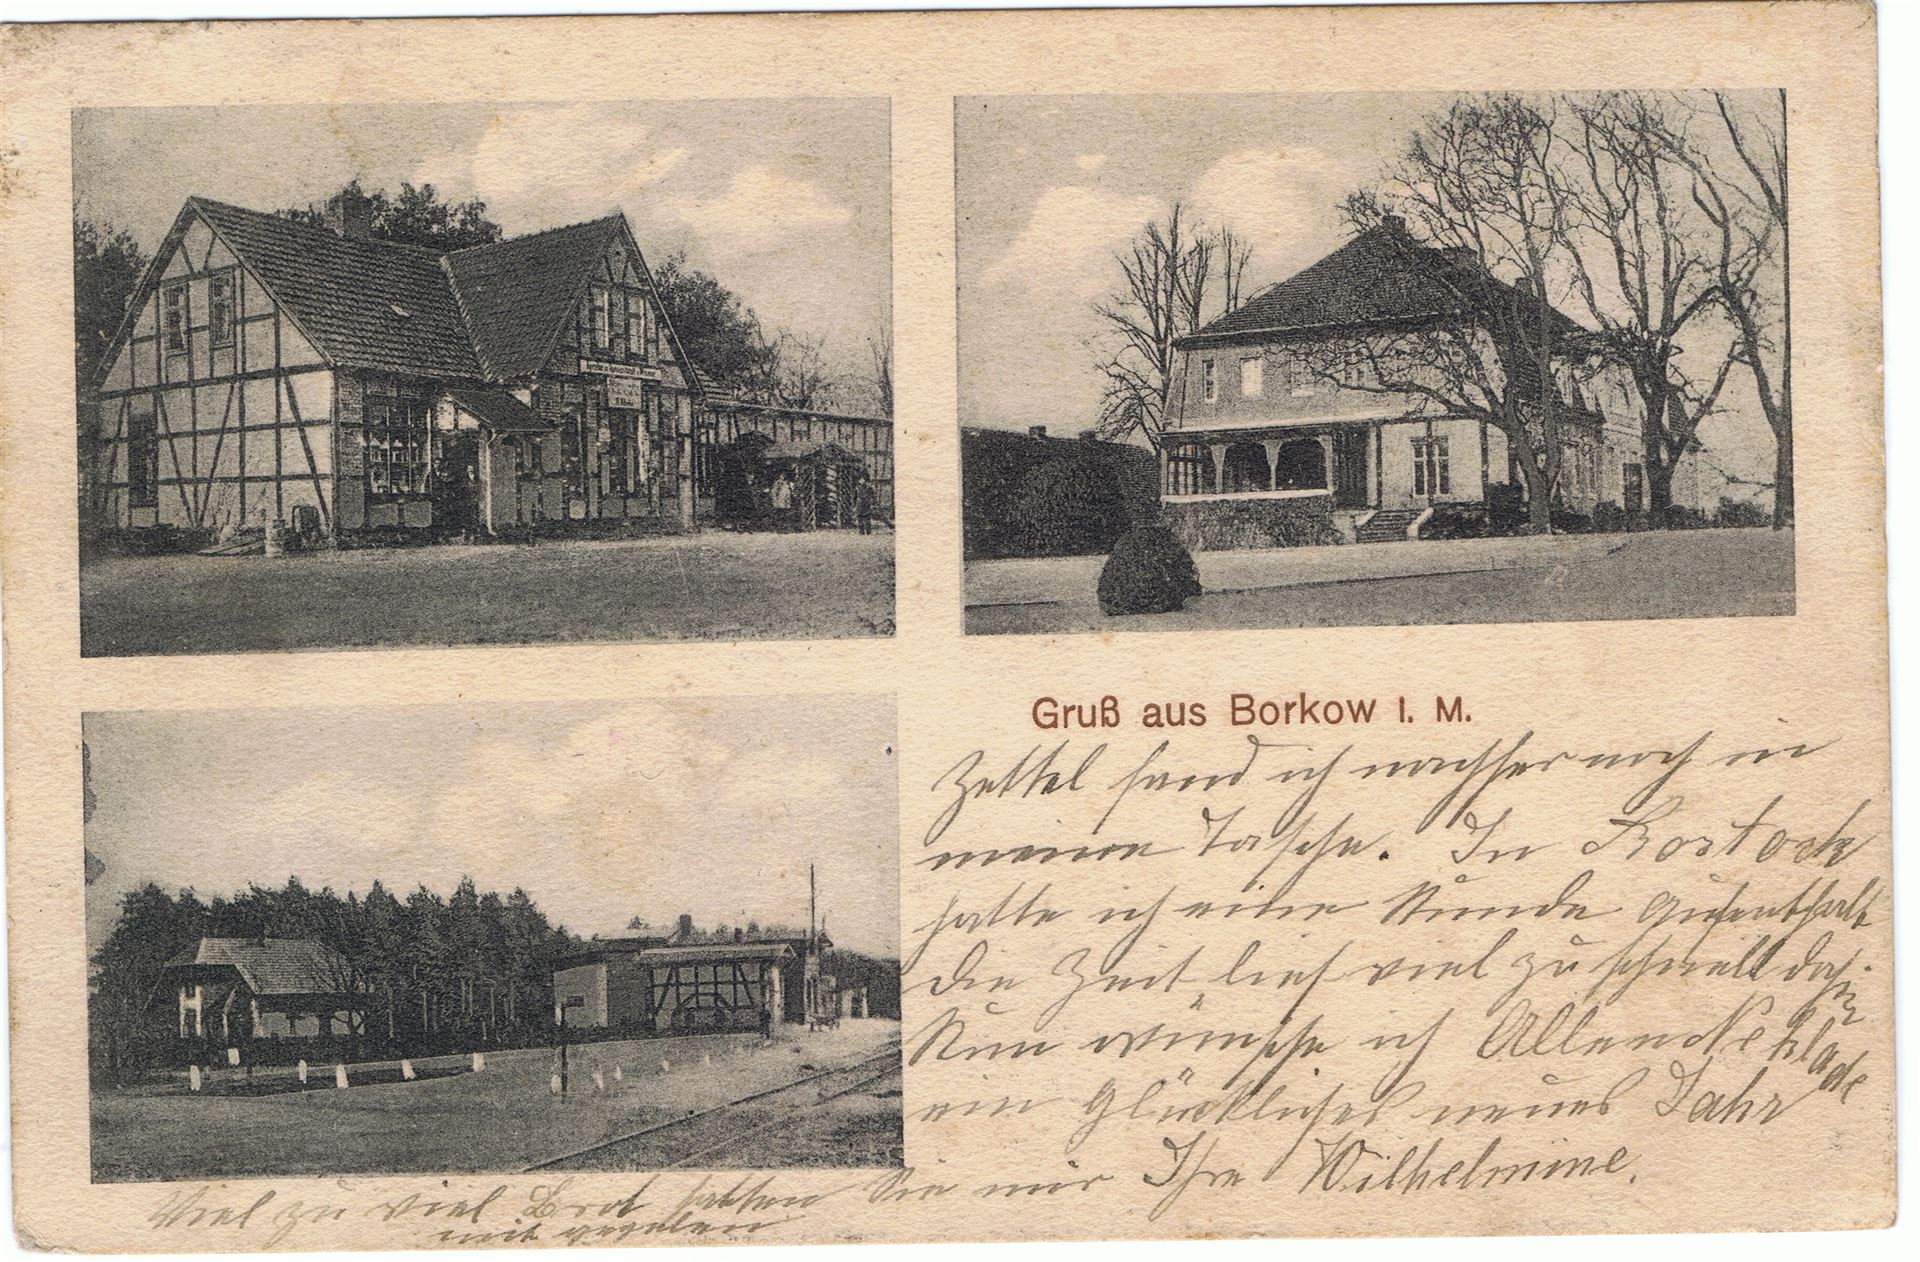 Gruß aus Borkow I. M.
Zettel fand ich nachher noch in
meine Tasche. In Rostock
hatte ich eine Stunde Aufenthalt
die Zeit lief viel zu schnell dahin
Nun wünsche ich Allen
ein Glückliches neues Jahr
Ihre Wilhelmine.
Viel zu viel Brot hatten Sie mir
mit gegeben